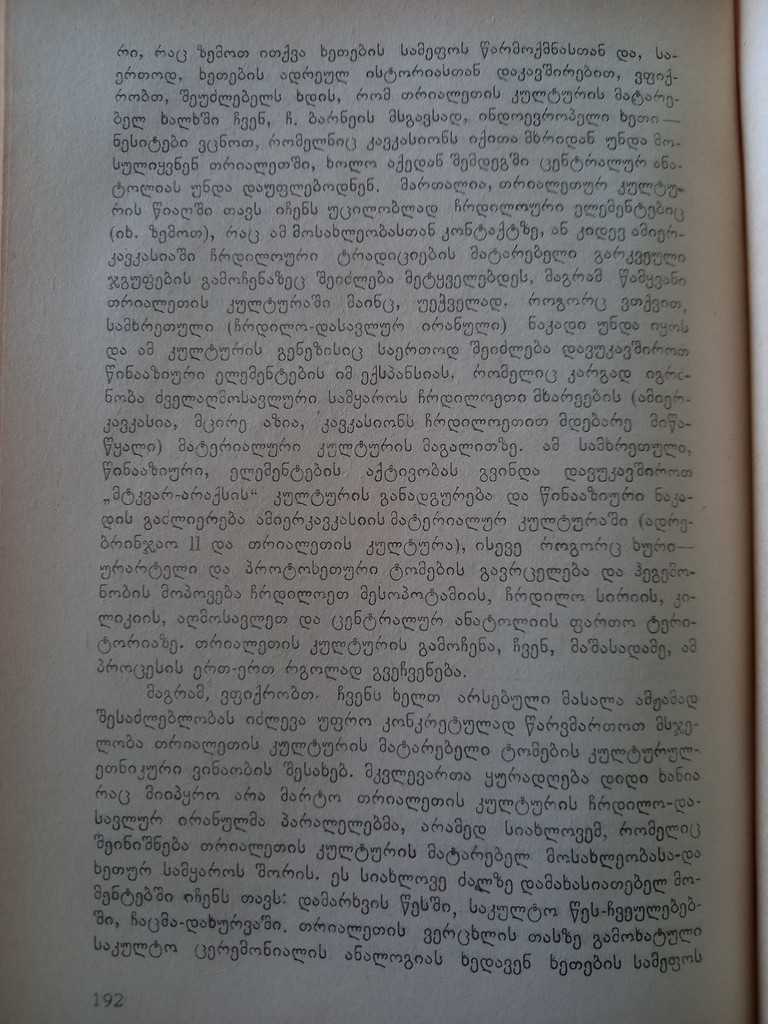 რი, რაც ზემოთ ითქვა ხეთების სამეფოს წარმოქმნასთან და, სა-
ერთოდ, ხეთების ადრეულ ისტორიასთან დაკავშირებით, ვფიქ-
რობთ, შეუძლებელს ხდის, რომ თრიალეთის კულტურის მატარე-
ბელ ხალხში ჩვენ, ჩ. ბარნეის მსგავსად, ინდოევროპელი ხეთი —
ნესიტები ვცნოთ, რომელნიც კავკასიონს იქითა მხრიდან უნდა მო-
სულიყვნენ თრიალეთში, ხოლო აქედან შემდეგში ცენტრალურ ანა-
ტოლიას უნდა დაუფლებოდნენ. მართალია, თრიალეთურ კულტუ-
რის წიაღში თავს იჩენს უცილობლად ჩრდილოური ელემენტებიც
(იხ. ზემოთ), რაც ამ მოსახლეობასთან კონტაქტზე, ან კიდევ ამიერ-
კავკასიაში ჩრდილოური ტრადიციების მატარებელი გარკვეული
ჯგუფების გამოჩენაზეც შეიძლება მეტყველებდეს, მაგრამ წამყვანი
თრიალეთის კულტურაში მაინც, უეჭველად, როგორც ვთქვით,
სამხრეთული (ჩრდილო-დასავლურ ირანული) ნაკადი უნდა იყოს
და ამ კულტურის გენეზისიც საერთოდ შეიძლება დავუკავშიროთ
წინააზიური ელემენტების იმ ექსპანსიას, რომელიც კარგად იგრძ-
ნობა ძველაღმოსავლური სამყაროს ჩრდილოეთი მხარეების (ამიერ-
კავკასია, მცირე აზია, კავკასიონს ჩრდილოეთით მდებარე მიწა-
წყალი) მატერიალური კულტურის მაგალითზე. ამ სამხრეთული,
წინააზიური, ელემენტების აქტივობას გვინდა დავუკავშიროთ
„მტკვარ-არაქსის“ კულტურის განადგურება და წინააზიური ნაკა-
დის გაძლიერება ამიერკავკასიის მატერიალურ კულტურაში (ადრე-
ბრინჯაო II და თრიალეთის კულტურა), ისევე როგორც ხური —
ურარტელი და პროტოხეთური ტომების გავრცელება და ჰეგემო-
ნობის მოპოვება ჩრდილოეთ მესოპოტამიის, ჩრდილო სირიის, კი-
ლიკიის, აღმოსავლეთ და ცენტრალურ ანატოლიის ფართო ტერი-
ტორიაზე. თრიალეთის კულტურის გამოჩენა, ჩვენ, მაშასადამე, ამ
პროცესის ერთ-ერთ რგოლად გვეჩვენება.
მაგრამ, ვფიქრობთ. ჩვენს ხელთ არსებული მასალა ამჟამად
შესაძლებლობას იძლევა უფრო კონკრეტულად წარვმართოთ მსჯე-
ლობა თრიალეთის კულტურის მატარებელი ტომების კულტურულ-
ეთნიკური ვინაობის შესახებ. მკვლევართა ყურადღება დიდი ხანია
რაც მიიპყრო არა მარტო თრიალეთის კულტურის ჩრდილო-და-
სავლურ ირანულმა პარალელებმა, არამედ სიახლოვემ, რომელიც
შეინიშნება თრიალეთის კულტურის მატარებელ მოსახლეობასა-და
ხეთურ სამყაროს შორის. ეს სიახლოვე ძალზე დამახასიათებელ მო-
მენტებში იჩენს თავს: დამარხვის წესში, საკულტო წეს-ჩვეულებებ-
ში, ჩაცმა-დახურვაში. თრიალეთის ვერცხლის თასზე გამოხატული
საკულტო ცერემონიალის ანალოგიას ხედავენ ხეთების სამეფოს
192